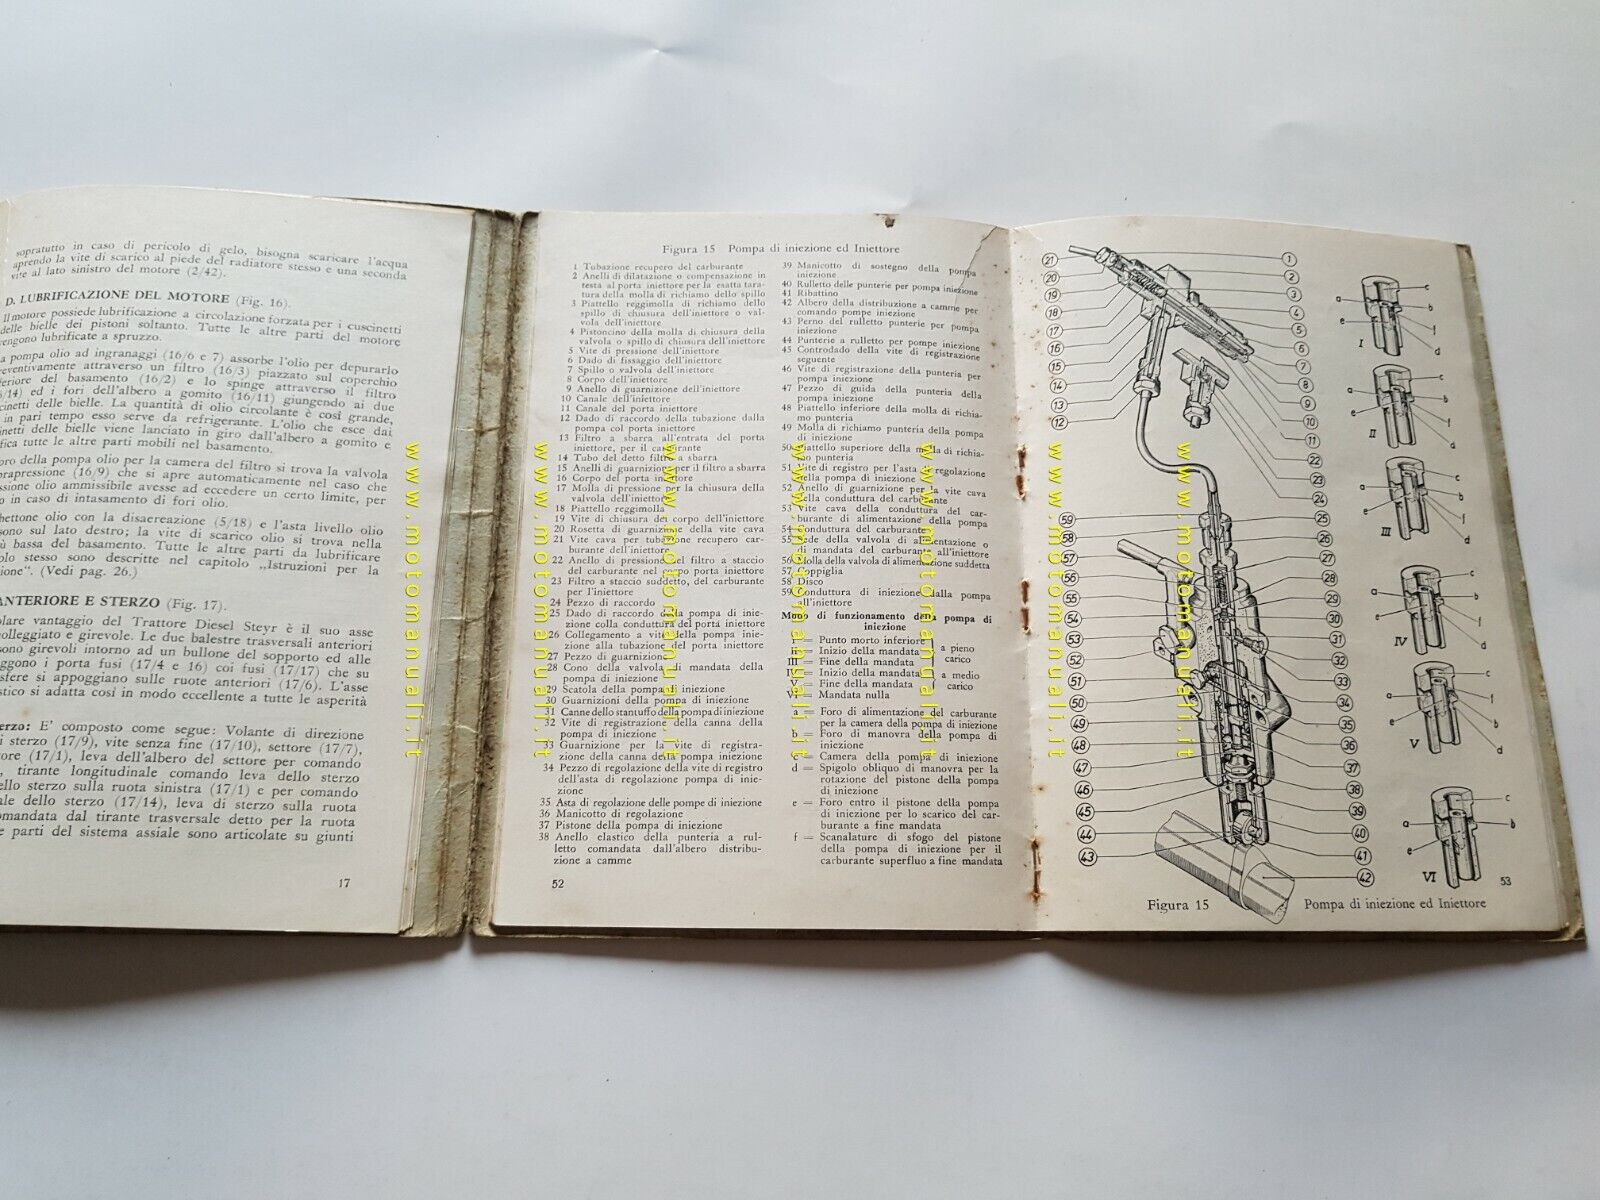 sopratutto in caso di pericolo di gelo, bisogna scaricare l'acqua
aprendo la vite di scarico al piede del radiatore stesso e una seconda
vite al lato sinistro del motore (2/42).
D. LUBRIFICAZIONE DEL MOTORE (Fig. 16).
Il motore possiede lubrificazione a circolazione forzata per i cuscinetti
delle bielle dei pistoni soltanto. Tutte le altre parti del motore
vengono lubrificate a spruzzo.
a pompa olio ad ingranaggi (16/6 e 7) assorbe l'olio per depurarlo
eventivamente attraverso un filtro (16/3) piazzato sul coperchio
feriore del basamento (16/2) e lo spinge attraverso il filtro
/14) ed i fori dell'albero a gomito (16/11) giungendo ai due
cinetti delle bielle. La quantità di olio circolante è così grande,
in pari tempo esso serve da refrigerante. L'olio che esce dai
inetti delle bielle viene lanciato in giro dall'albero a gomito e
ifica tutte le altre parti mobili nel basamento.
oro della pompa olio per la camera del filtro si trova la valvola
rapressione (16/9) che si apre automaticamente nel caso che
ssione olio ammissibile avesse ad eccedere un certo limite, per
o in caso di intasamento di fori olio.
hettone olio con la disaereazione (5/18) e l'asta livello olio
sono sul lato destro; la vite di scarico olio si trova nella
ù bassa del basamento. Tutte le altre parti da lubrificare
olo stesso sono descritte nel capitolo „Istruzioni per la
ione“. (Vedi pag. 26.)
ANTERIORE E STERZO (Fig. 17).
olare vantaggio del Trattore Diesel Steyr è il suo asse
olleggiato e girevole. Le due balestre trasversali anteriori
sono girevoli intorno ad un bullone del sopporto ed alle
ggono i porta fusi (17/4 e 16) coi fusi (17/17) che su
sfere si appoggiano sulle ruote anteriori (17/6). L'asse
stico si adatta così in modo eccellente a tutte le asperità
erzo: E' composto come segue: Volante di direzione
i sterzo (17/9), vite senza fine (17/10), settore (17/7),
ore (17/1), leva dell'albero del settore per comando
, tirante longitudinale comando leva dello sterzo
ello sterzo sulla ruota sinistra (17/1) e per comando
ale dello sterzo (17/14), leva di sterzo sulla ruota
omandata dal tirante trasversale detto per la ruota
e parti del sistema assiale sono articolate su giunti
17
www.motomanuali.it
Figura 15 Pompa di iniezione ed Iniettore
1 Tubazione recupero del carburante
2 Anelli di dilatazione o compensazione in
testa al porta iniettore per la esatta tara-
tura della molla di richiamo dello spillo
3 Piattello reggimolla di richiamo dello
spillo di chiusura dell'iniettore o val-
vola dell'iniettore
4 Pistoncino della molla di chiusura della
valvola o spillo di chiusura dell'iniettore
5 Vite di pressione dell'iniettore
6 Dado di fissaggio dell'iniettore
7 Spillo o valvola dell'iniettore
8 Corpo dell'iniettore
9 Anello di guarnizione dell'iniettore
10 Canale dell'iniettore
11 Canale del porta iniettore
12 Dado di raccordo della tubazione dalla
pompa col porta iniettore
13 Filtro a sbarra all'entrata del porta
iniettore, per il carburante
14 Tubo del detto filtro a sbarra
15 Anelli di guarnizione per il filtro a sbarra
16 Corpo del porta iniettore
17 Molla di pressione per la chiusura della
valvola dell'iniettore
18 Piattello reggimolla
19 Vite di chiusura del corpo dell'iniettore
20 Rosetta di guarnizione della vite cava
21 Vite cava per tubazione recupero car-
burante dell'iniettore
22 Anello di pressione del filtro a staccio
del carburante nel corpo porta iniettore
23 Filtro a staccio suddetto, del carburante
per l'iniettore
24 Pezzo di raccordo
25 Dado di raccordo della pompa di inie-
zione colla conduttura del porta iniettore
26 Collegamento a vite della pompa inie-
zione alla tubazione del porta iniettore
27 Pezzo di guarnizione
28 Cono della valvola di mandata della
pompa di iniezione
29 Scatola della pompa di iniezione
30 Guarnizioni della pompa di iniezione
31 Canne dello stantuffo della pompa di iniezione
32 Vite di registrazione della canna della
pompa di iniezione
33 Guarnizione per la vite di registra-
zione della canna della pompa iniezione
34 Pezzo di regolazione della vite di registro
dell'asta di regolazione pompa di inie-
zione
35 Asta di regolazione delle pompe di iniezione
36 Manicotto di regolazione
37 Pistone della pompa di iniezione
38 Anello elastico della punteria a rul-
letto comandata dall'albero distribu-
zione a camme
52
www.motomanuali.it
39 Manicotto di sostegno della pompa
iniezione
40 Rulletto delle punterie per pompa iniezione
41 Ribattino
42 Albero della distribuzione a camme per
comando pompe iniezione
43 Perno del rulletto punterie per pompa
iniezione
44 Punterie a rulletto per pompe iniezione
45 Controdado della vite di registrazione
seguente
46 Vite di registrazione della punteria per
pompa iniezione
47 Pezzo di guida della punteria della
pompa iniezione
48 Piattello inferiore della molla di richia-
mo punteria
49 Molla di richiamo punteria della pompa
di iniezione
50 Piattello superiore della molla di richia-
mo punteria
51 Vite di registro per l'asta di regolazione
della pompa di iniezione
52 Anello di guarnizione per la vite cava
della conduttura del carburante
53 Vite cava della conduttura del car-
burante di alimentazione della pompa
54 Conduttura del carburante
55 Sede della valvola di alimentazione o
di mandata del carburante all'iniettore
56 Molla della valvola di alimentazione suddetta
57 Coppiglia
58 Disco
59 Conduttura di iniezione dalla pompa
all'iniettore
Modo di funzionamento della pompa di
iniezione
I = Punto morto inferiore
II = Inizio della mandata } a pieno
III = Fine della mandata } carico
IV = Inizio della mandata } a medio
V = Fine della mandata } carico
VI = Mandata nulla
a = Foro di alimentazione del carburante
per la camera della pompa di iniezione
b = Foro di manovra della pompa di
iniezione
c = Camera della pompa di iniezione
d = Spigolo obliquo di manovra per la
rotazione del pistone della pompa
di iniezione
e = Foro entro il pistone della pompa
di iniezione per lo scarico del car-
burante a fine mandata
f = Scanalature di sfogo del pistone
della pompa di iniezione per il
carburante superfluo a fine mandata
www.motomanuali.it
www.motomanuali.it
21
20
19
18
17
16
15
14
13
12
1
2
3
4
5
6
7
8
9
10
11
22
23
24
59
58
57
56
55
54
53
52
51
50
49
48
47
46
45
44
43
25
26
27
28
29
30
31
32
33
34
35
36
37
38
39
40
41
42
a e c b f d
I
a e c b f d
II
a e c b f d
III
a e c b f d
IV
a e c f b d
V
a e c b d
VI
www.motomanuali.it
53
Figura 15 Pompa di iniezione ed Iniettore